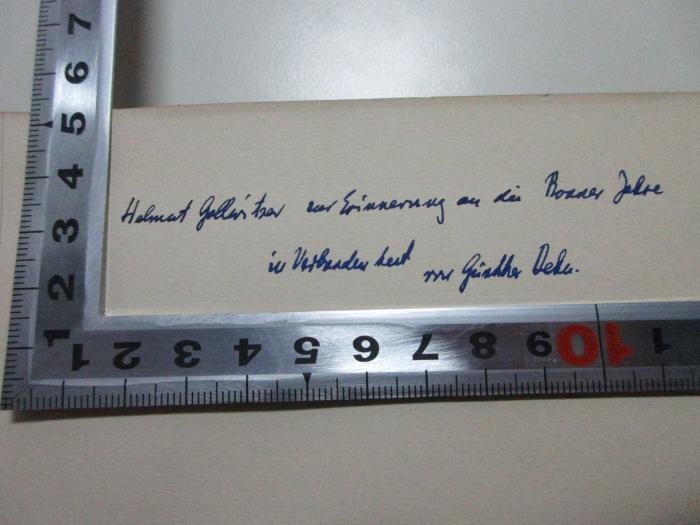 Helmut Gollwitzer zur Erinnerung an die Bonner Jahre
in Verbundenheit von Günther Dehn.
7
6
5
4
3
2
1
1 2 3 4 5 6 7 8 9 10 1